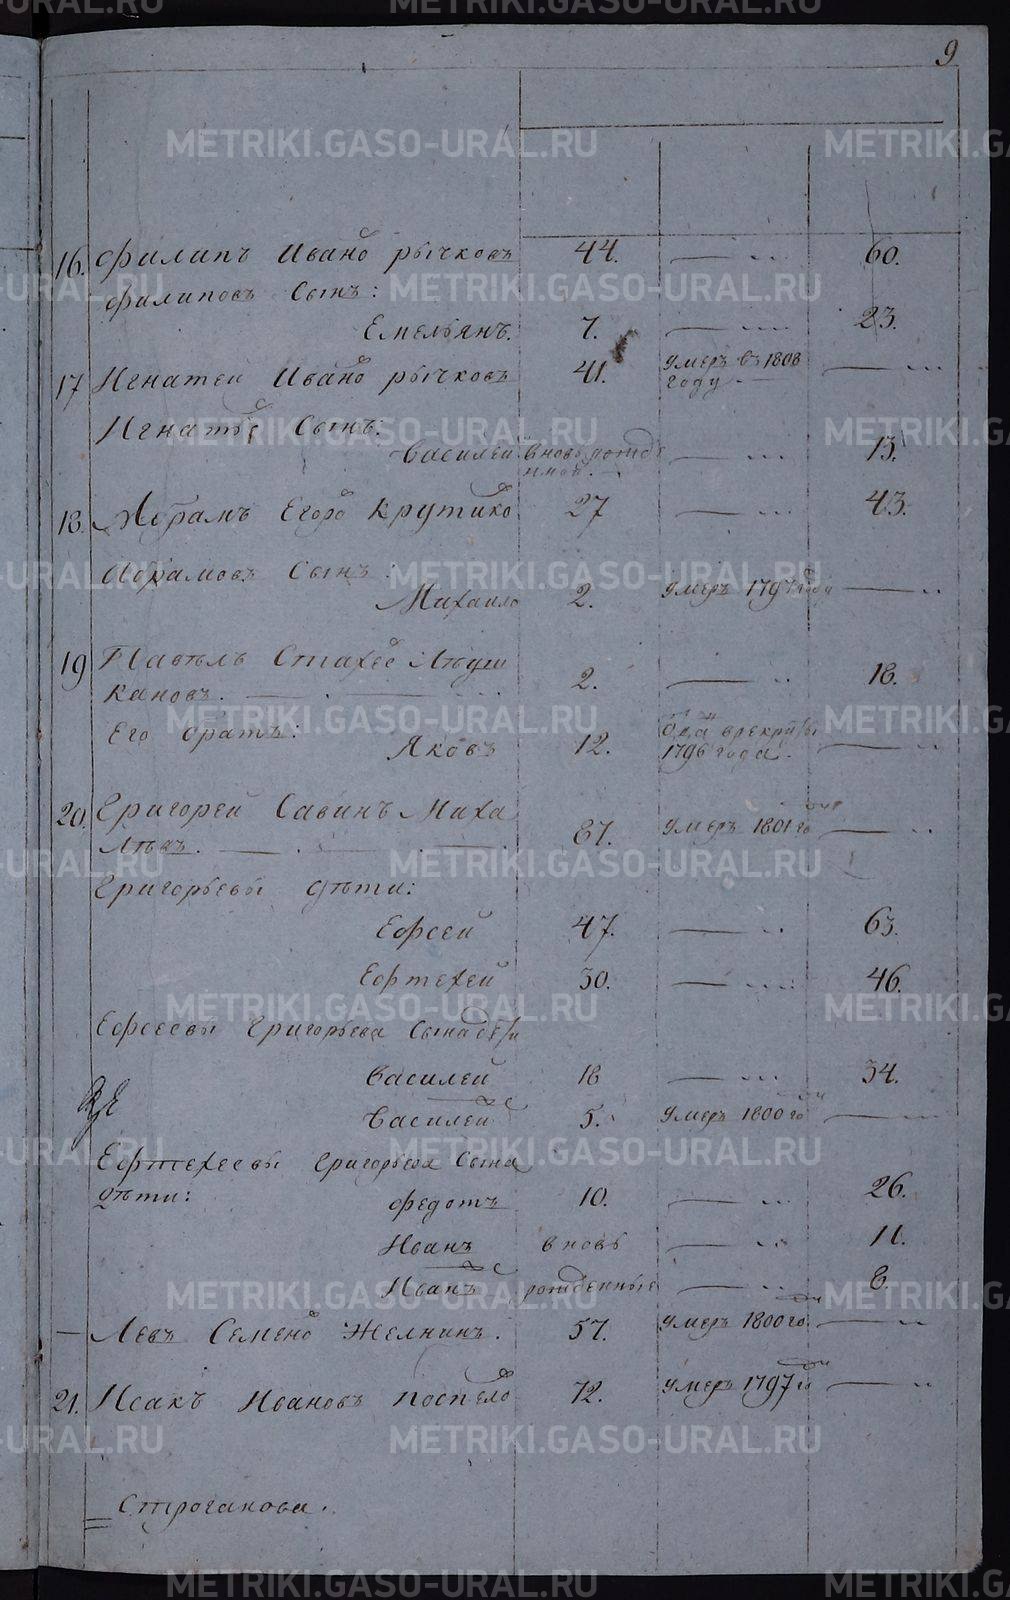 9
16. Филипъ Ивано рычковъ 44. — 60.
Филиповъ Сынъ:
Емельянъ. 7. — 23.
17 Игнатей Ивано рычковъ 41. умеръ въ 1808 году. —
Игнатье Сынъ:
Василей вновь рожденной. — 13.
18. Абрамъ Егоро Крутико 27 — 43.
Абрамовъ Сынъ:
Михаило 2. умеръ 1797 году —
19 Павелъ Стахее
кановъ. 2. — 18.
Его братъ:
Яковъ 12. 1796 года. —
20. Григорей Савинъ Миха
левъ. 87. умеръ 1801 го —
Григорьевы дѣти:
Ефсей 47. — 63.
Ефтехей 30. — 46.
Ефсеевы Григорьева Сына дети
Василей 18 — 34.
Василей 5. умеръ 1800 го —
Ефтехеевы Григорьева Сына
дѣти:
Федотъ 10. — 26.
Иванъ вновь — 11.
Иванъ рожденные — 6.
— Левъ Семено Желнинъ. 57. умеръ 1800 го —
21. Исакъ Ивановъ Поспело 72. умеръ 1797 го —
Строганова.
METRIKI.GASO-URAL.RU